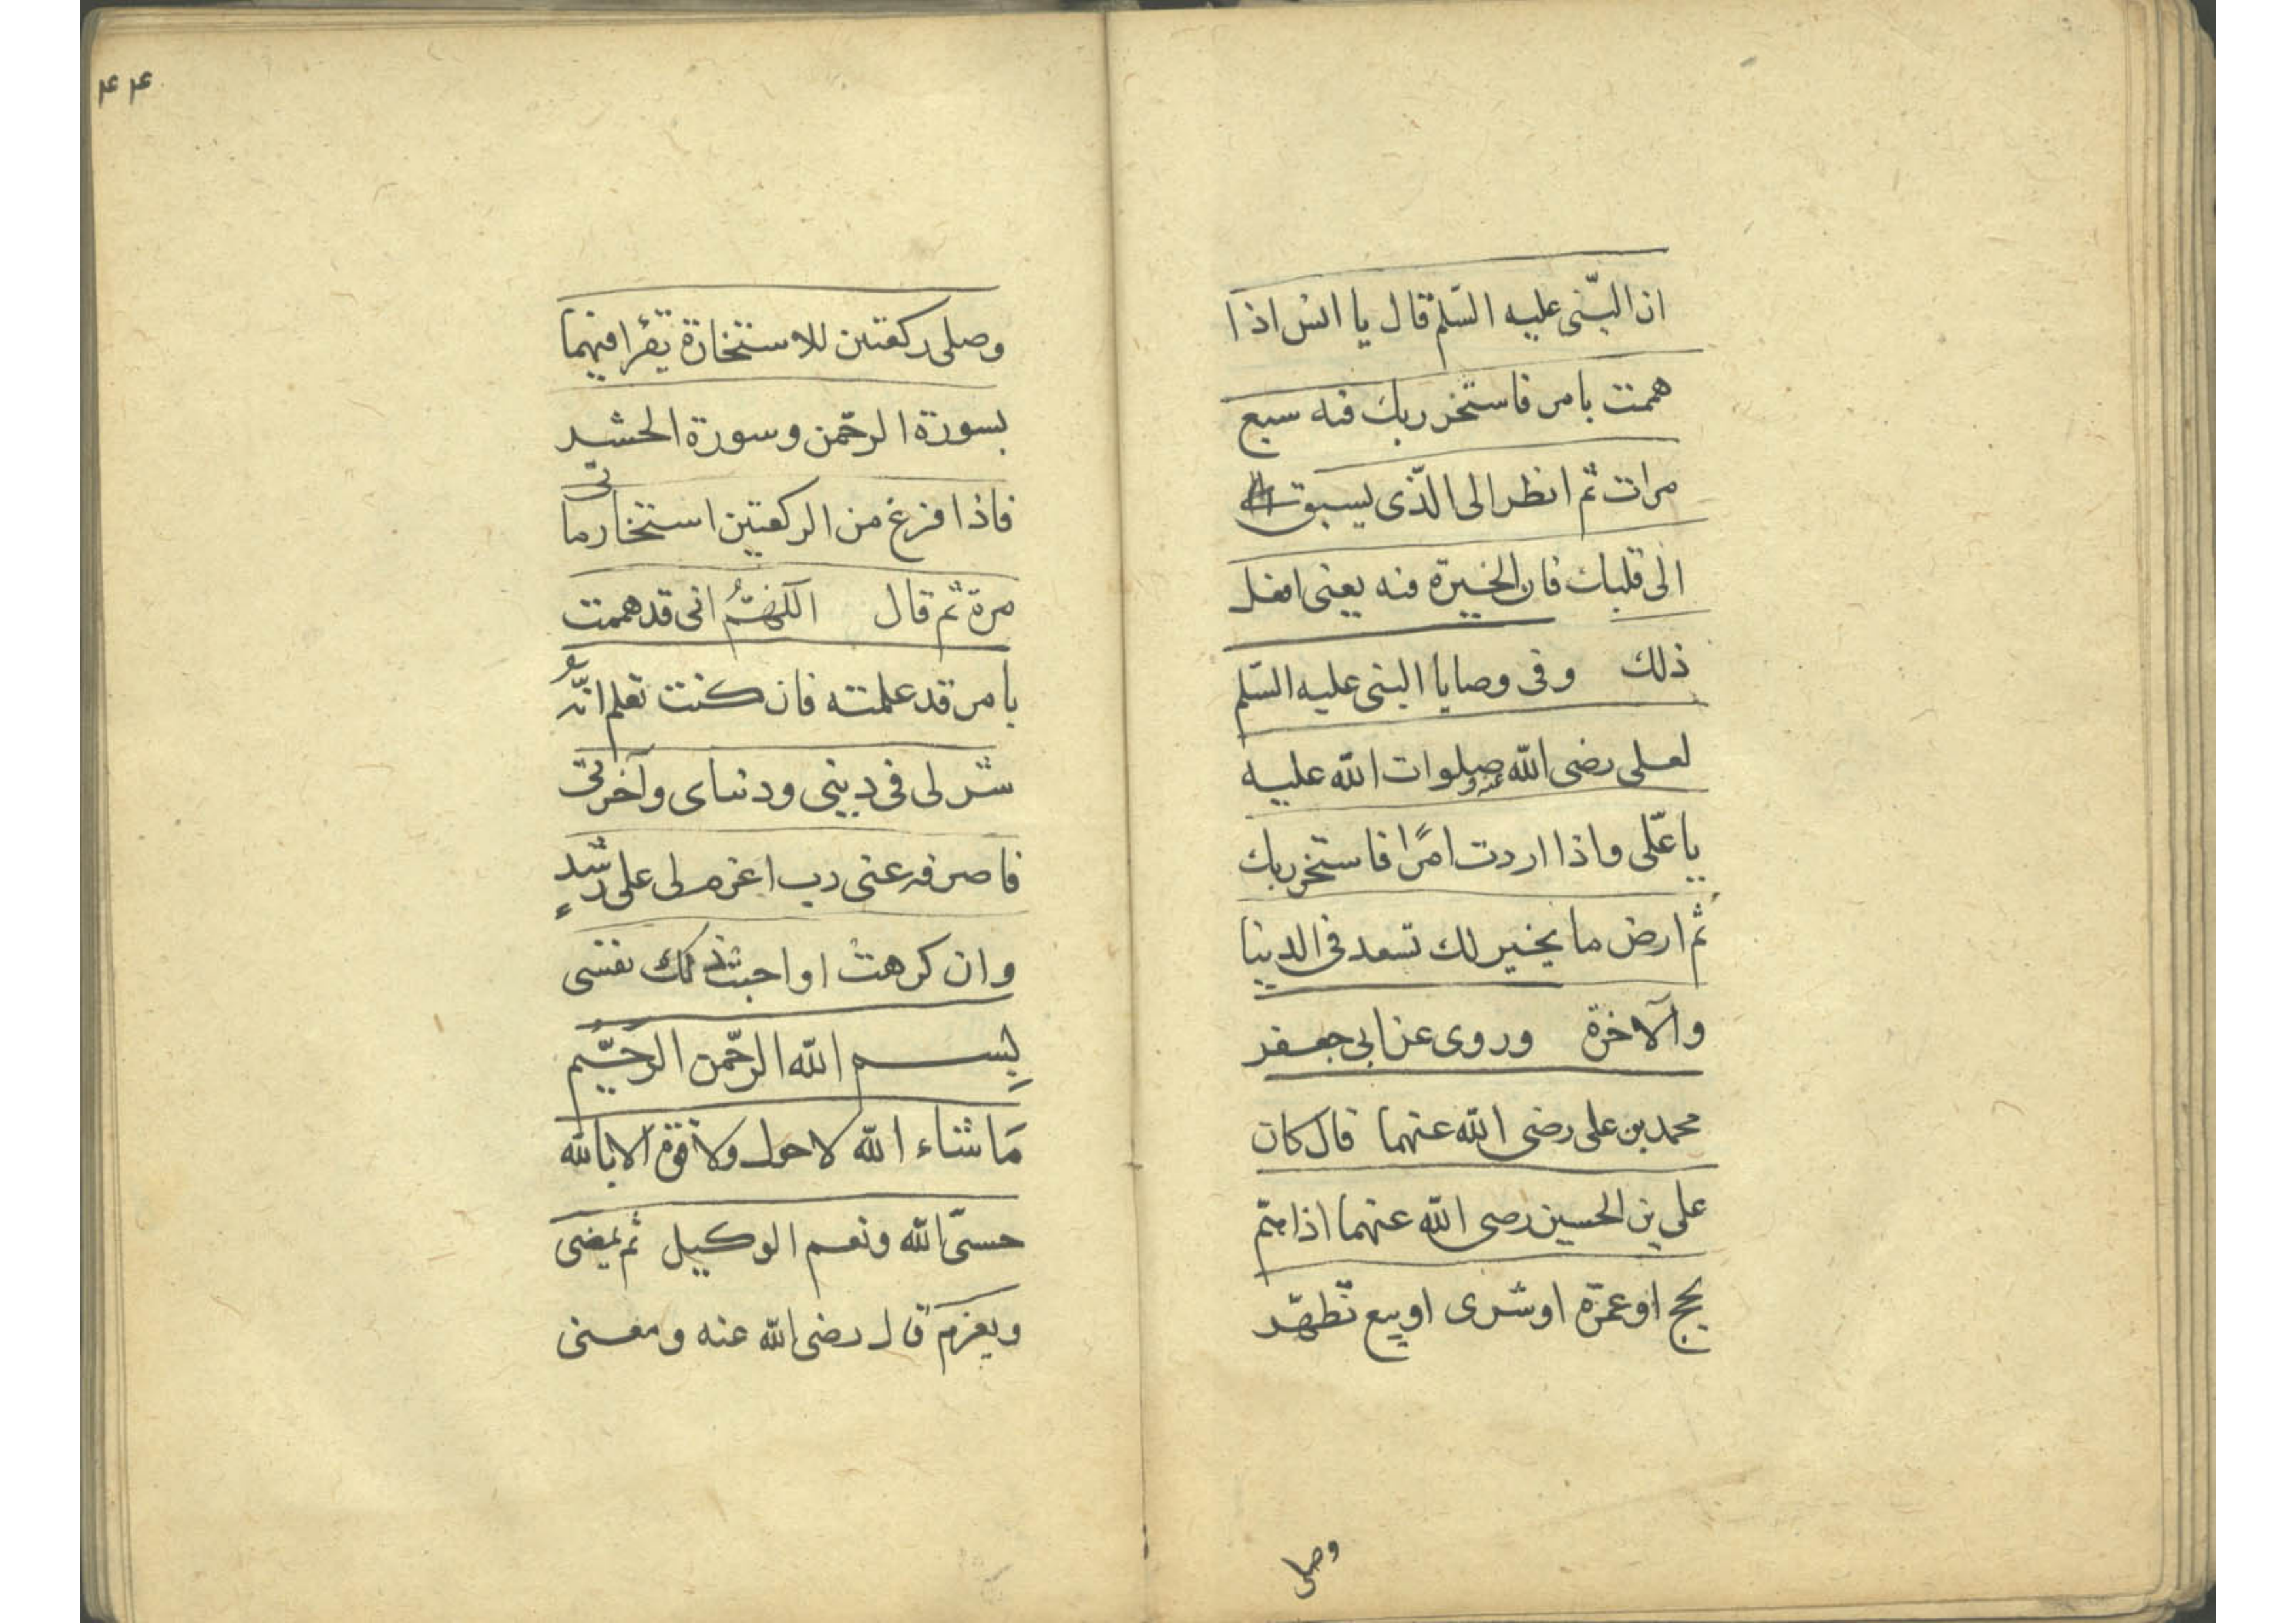 ان النّبى عليه السّلم قال يا انس اذا
هممت بامر فاستخر ربك فيه سبع
مرات ثم انظر الى الذّى يسبق
الى قلبك فان الخيرة فيه يعنى افعل
ذلك وفى وصايا النبى عليه السّلم
لعلى رضى الله عنه وصلوات الله عليه
يا علّى واذا اردت امرًا فاستخر ربك
ثم ارض ما يخير لك تسعد فى الدينا
والآخرة وروى عن ابى جعفر
محمد بن على رضى الله عنهما قال كان
على بن الحسين رضى الله عنهما اذا همّ
بحج او عمرة او شرى او بيع تطهّر
وصلى
۴۴
وصلى ركعتين للاستخارة يقرا فيهما
بسورة الرحمن وسورة الحشر
فاذا فرغ من الركعتين استخار مأتى
مرة ثم قال اللّهمُّ انى قد هممت
بامر قد علمته فان كنت تعلم انّهُ
شرّ لى فى دينى ودنياى وآخرتى
فاصرفه عنى رب اعزم لى على رشدٍ
وان كرهت او احبت ذلك نفسى
بِســم الله الرحّمن الرحَيّم
مَا شاء الله لا حول ولا قوة الا بالله
حسبّى الله ونعم الوكيل ثم يمضى
ويعزم قال رضى الله عنه ومعنى